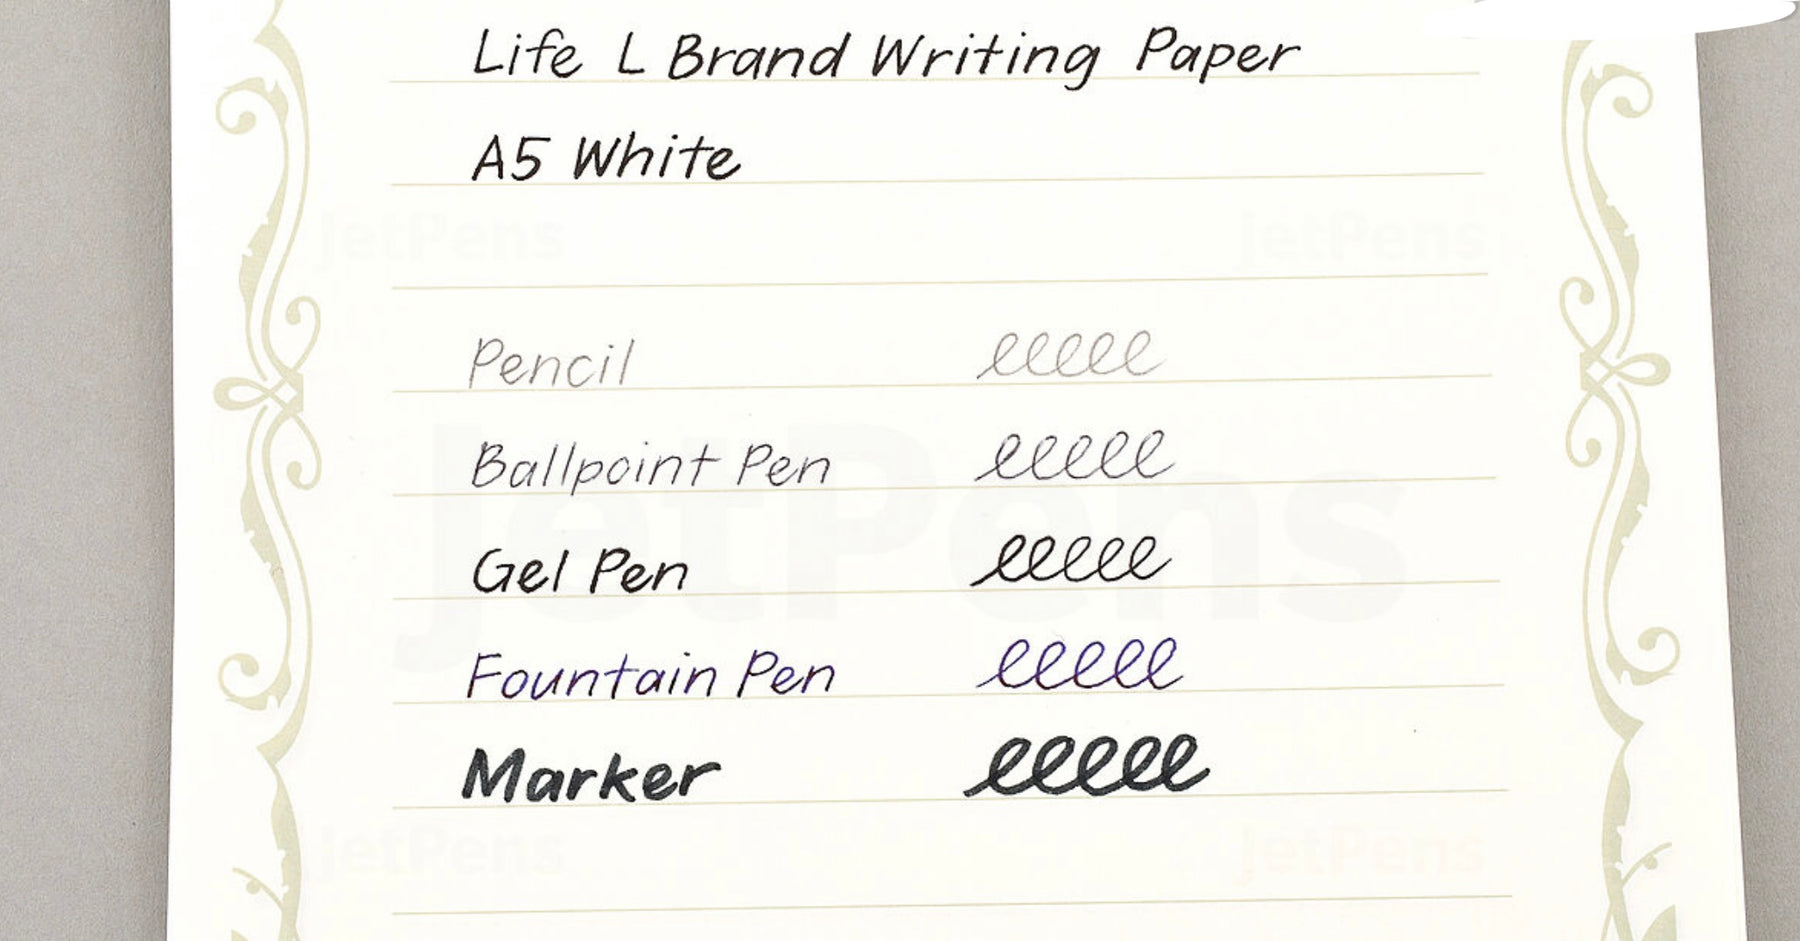 Life L Brand Writing Paper
A5 White
JetPens JetPens
Pencil eeeee
Ballpoint Pen eeeee
JetPens
Gel Pen eeeee
Fountain Pen eeeee
Marker eeeee
JetPens JetPens